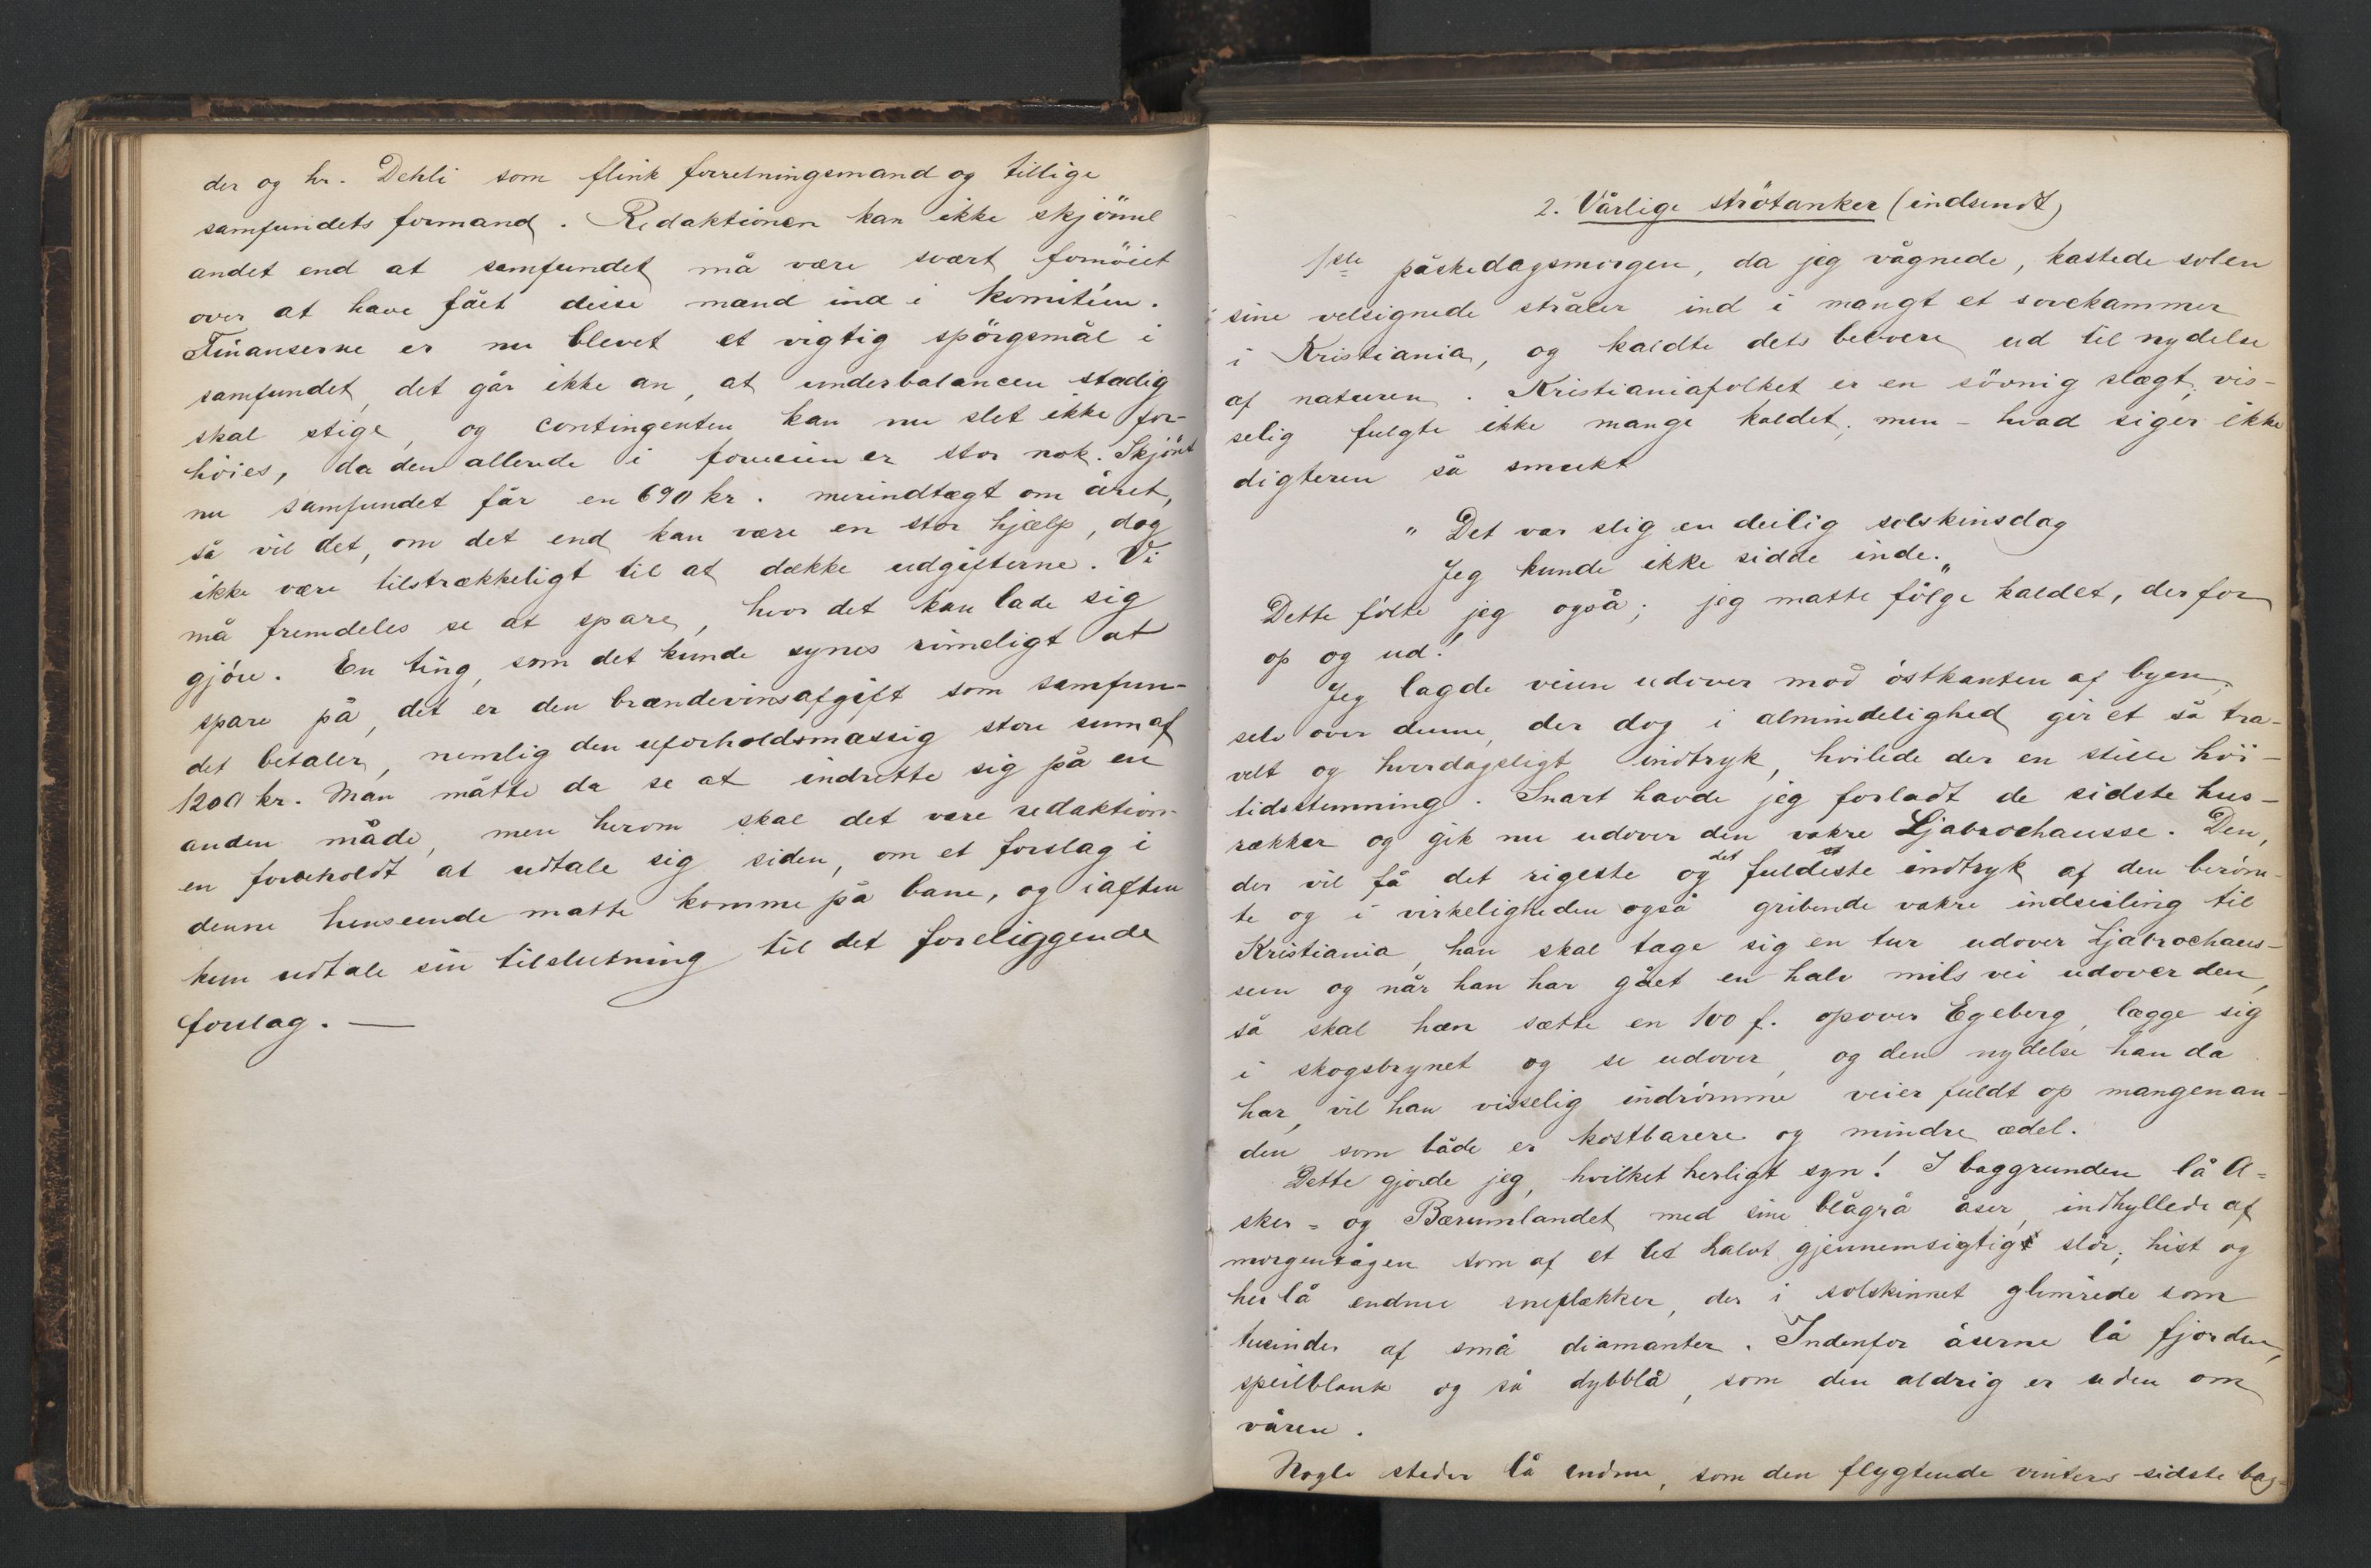 der og hr. Dehli som flink forretningsmand og tillige
samfundets formand. Redaktionen kan ikke skjönne
andet end at samfundet må være svært fornöiet
over at have fået disse mænd ind i komitéen.
Finanserne er nu blevet et vigtig spörgsmål i
samfundet, det går ikke an, at underbalancen stadig
skal stige, og contingenten kan nu slet ikke for-
höies, da den allerede i forveien er stor nok. Skjönt
nu samfundet får en 690 kr. merindtægt om året,
så vil det, om det end kan være en stor hjælp, dog
ikke være tilstrækkeligt til at dække udgifterne. Vi
må fremdeles se at spare, hvor det kan lade sig
gjöre. En ting, som det kunde synes rimeligt at
spare på, det er den brændevinsafgift som samfun-
det betaler, nemlig den uforholdsmæssig store sum af
1200 kr. Man måtte da se at indrette sig på en
anden måde, men herom skal det være redaktion-
en foreholdt at udtale sig siden, om et forslag i
denne henseende matte komme på bane, og iaften
kun udtale sin tilslutning til det foreliggende
forslag. —
2. Vårlige strötanker (indsendt)
1ste påskedagsmorgen, da jeg vågnede, kastede solen
sine velsignede stråler ind i mangt et sovekammer
i Kristiania, og kaldte dets beboere ud til nydelse
af naturen. Kristianiafolket er en sövnig slægt; vis-
selig fulgte ikke mange kaldet; men – hvad siger ikke
digteren så smukt
" Det var slig en deilig solskinsdag
Jeg kunde ikke sidde inde."
Dette fölte jeg også; jeg matte fölge kaldet, derfor
op og ud!
Jeg lagde veien udover mod östkanten af byen;
selv over denne, der dog i almindelighed gir et så tra-
velt og hverdagsligt indtryk, hvilede der en stille höi-
tidsstemning. Snart havde jeg forladt de sidste hus-
rækker og gik nu udover den vakre Ljabrochausse. Den,
der vil få det rigeste og det fuldeste indtryk af den beröm-
te og i virkeligheden også gribende vakre indseiling til
Kristiania, han skal tage sig en tur udover Ljabrochaus-
seen og når han har gået en halv mils vei udover den,
så skal han sætte en 100 f. opover Egeberg, lægge sig
i skogsbrynet og se udover, og den nydelse han da
har, vil han visselig indrömme veier fuldt op mangen an-
den som både er kostbarere og mindre ædel.
Dette gjorde jeg, hvilket herligt syn! I baggrunden lå A-
sker- og Bærumlandet med sine blågrå åser, indhyllede af
morgentågen som af et let halvt gjennemsigtigt slör; hist og
her lå endnu sneflækker, der i solskinnet glimrede som
tusinder af små diamanter. Indenfor åserne lå fjorden,
speilblank og så dybblå, som den aldrig er uden om
våren.
Nogle steder lå endnu, som den flygtende vinters sidste bag-